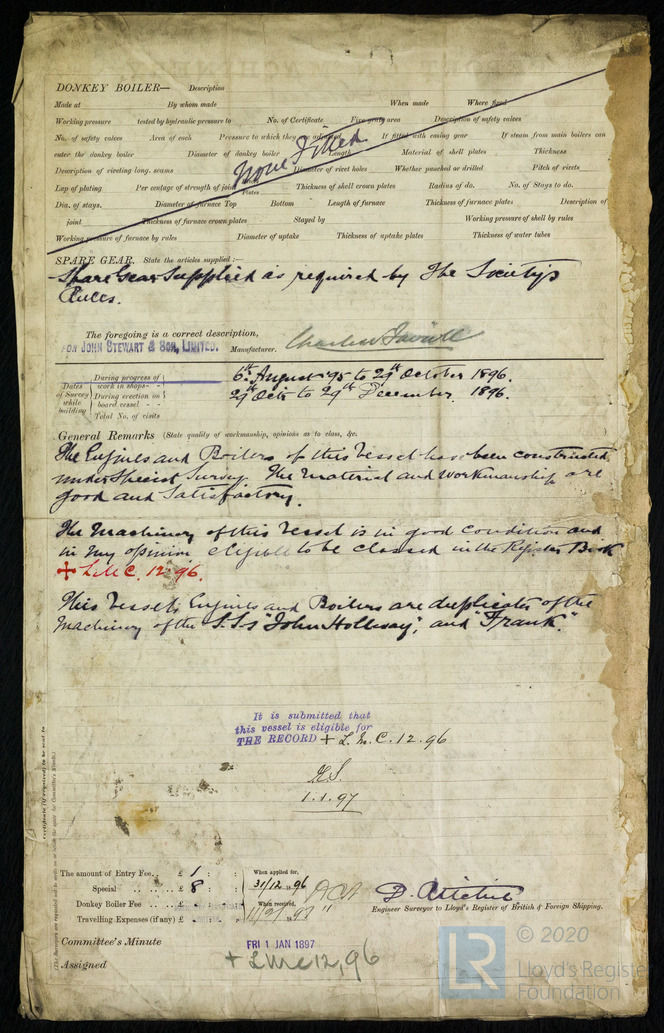 DONKEY BOILER— Description
Made at By whom made When made Where fixed
Working pressure tested by hydraulic pressure to No. of Certificate Fire grate area Description of safety valves
No. of safety valves Area of each Pressure to which they are adjusted If fitted with easing gear If steam from main boilers can
enter the donkey boiler Diameter of donkey boiler Length Material of shell plates Thickness
Description of riveting long. seams Diameter of rivet holes Whether punched or drilled Pitch of rivets
None Fitted
Lap of plating Per centage of strength of joint Plates Thickness of shell crown plates Radius of do. No. of Stays to do.
Dia. of stays. Diameter of furnace Top Bottom Length of furnace Thickness of furnace plates Description of
joint Thickness of furnace crown plates Stayed by Working pressure of shell by rules
Working pressure of furnace by rules Diameter of uptake Thickness of uptake plates Thickness of water tubes
SPARE GEAR. State the articles supplied:—
Spare Gear Supplied as required by The Society's
Rules.
The foregoing is a correct description,
FOR JOHN STEWART & SON, LIMITED. Manufacturer.
Dates of Survey while building
During progress of work in shops - - 6th August '95 to 29th October 1896.
During erection on board vessel - - 29 Octr to 29th December. 1896.
Total No. of visits
General Remarks (State quality of workmanship, opinions as to class, &c.
The Engines and Boilers of this Vessel have been constructed
under Special Survey. The material and workmanship are
good and Satisfactory.
The Machinery of this Vessel is in good condition and
in my opinion eligible to be classed in the Register Book
+ L.M.C. 12.96.
This Vessels Engines and Boilers are duplicates of the
machinery of the S.S.s "John Holloway", and "Frank."
It is submitted that
this vessel is eligible for
THE RECORD + L.M.C. 12.96
1.1.97
The amount of Entry Fee.. £ 1 : : When applied for,
Special .. .. .. £ 8 : : 31/12 18 96
Donkey Boiler Fee .. .. £ When received,
Travelling Expenses (if any) £
Engineer Surveyor to Lloyd's Register of British & Foreign Shipping.
Committee's Minute FRI 1 JAN 1897
Assigned + LMC 12,96
LR © 2020
Lloyd's Register
Foundation